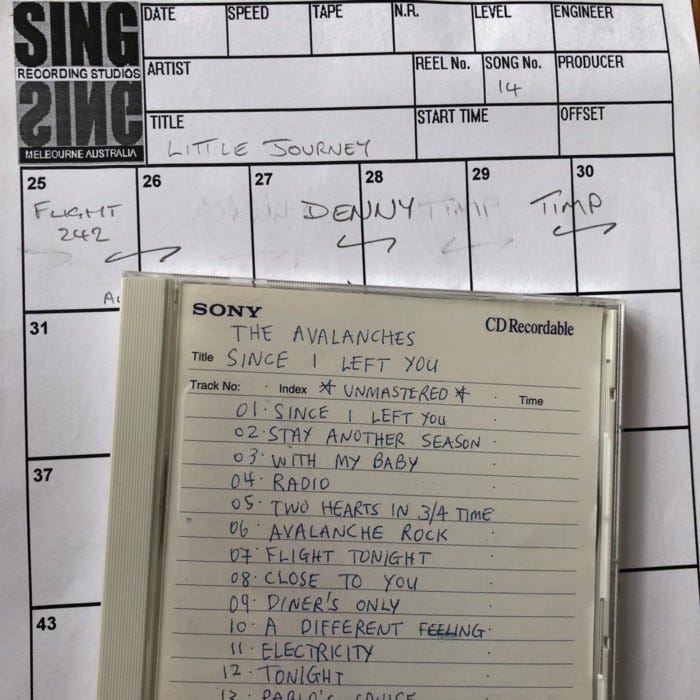 SING
RECORDING STUDIOS
SING
MELBOURNE AUSTRALIA
DATE SPEED TAPE N.R. LEVEL ENGINEER
ARTIST REEL No. SONG No. PRODUCER
14
TITLE START TIME OFFSET
LITTLE JOURNEY
25 26 27 28 29 30
FLIGHT 242 DENNY TIMP TIMP
31
37
43
SONY
CD Recordable
THE AVALANCHES
Title SINCE I LEFT YOU
Track No: Index * UNMASTERED * Time
01. SINCE I LEFT YOU
02. STAY ANOTHER SEASON
03. WITH MY BABY
04. RADIO
05. TWO HEARTS IN 3/4 TIME
06. AVALANCHE ROCK
07. FLIGHT TONIGHT
08. CLOSE TO YOU
09. DINER'S ONLY
10. A DIFFERENT FEELING
11. ELECTRICITY
12. TONIGHT
13. PABLO'S